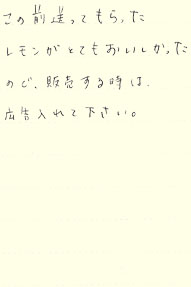 この前送ってもらった
レモンがとてもおいしかった
ので、販売する時は、
広告入れて下さい。